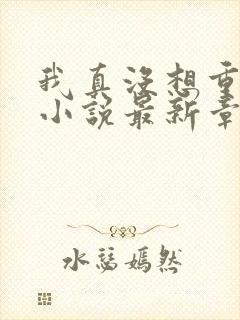 我真没想重
小说最新章
水瑟嫣然